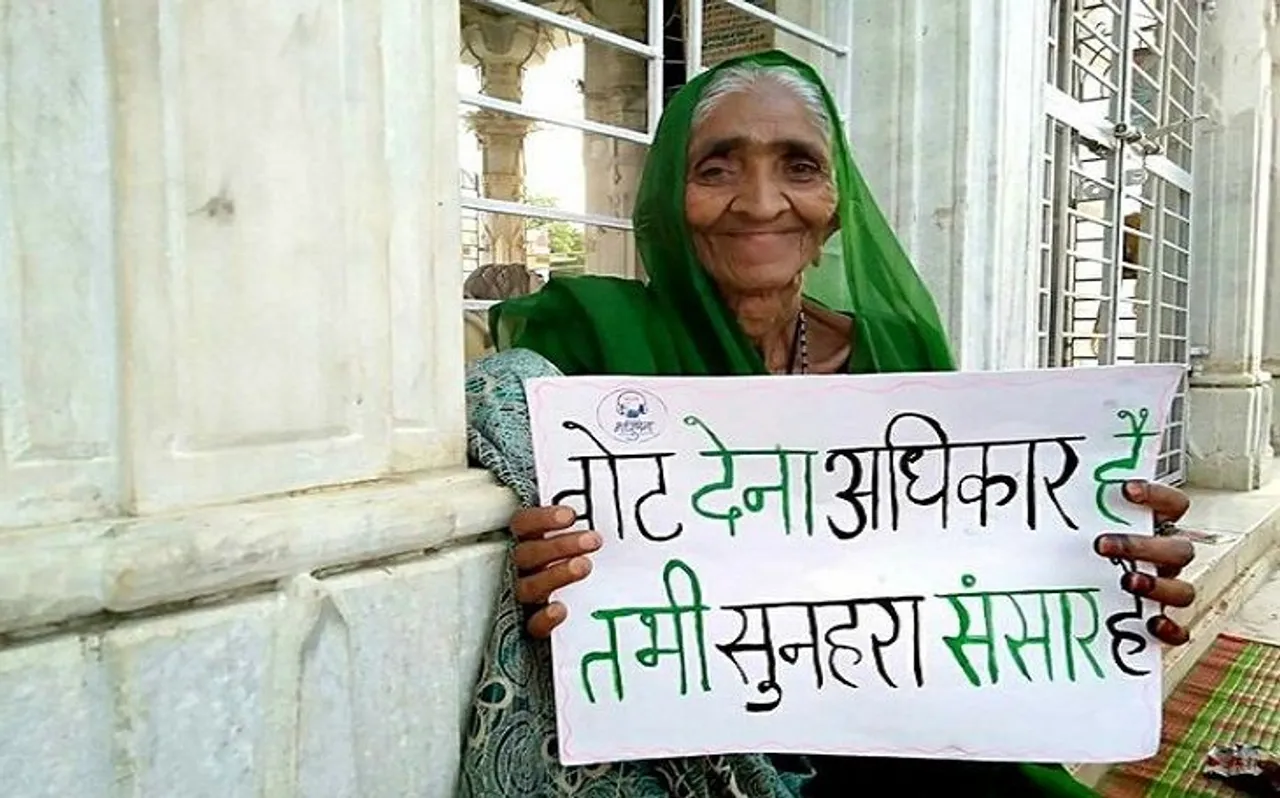 वोट देना अधिकार है
तभी सुनहरा संसार है